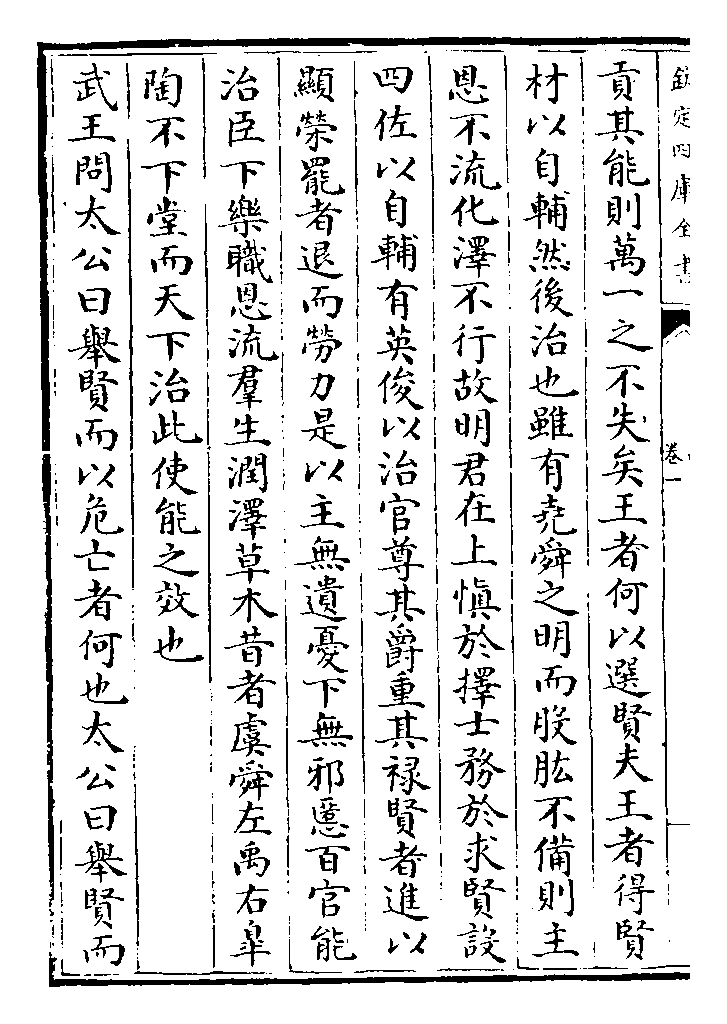 欽定四庫全書
卷一
貢其能則萬一之不失矣王者何以選賢夫王者得賢
材以自輔然後治也雖有堯舜之明而股肱不備則主
恩不流化澤不行故明君在上慎於擇士務於求賢設
四佐以自輔有英俊以治官尊其爵重其祿賢者進以
顯榮罷者退而勞力是以主無遺憂下無邪慝百官能
治臣下樂職恩流羣生潤澤草木昔者虞舜左禹右臯
陶不下堂而天下治此使能之效也
武王問太公曰舉賢而以危亡者何也太公曰舉賢而